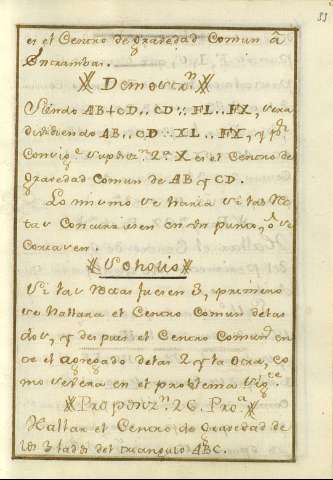 33
es el Centro de gravedad Comun â
Entrambas.
Demostrn.
Siendo AB+CD..CD::FL..FX, sera
dividiendo AB..CD::XL..FX, y pr
Consige supoçn. 2a. X es el Centro de
gravedad Comun de AB y CD.
Lo mismo se haria si las Rec
tas Concurriesen en un punto, ô se
Cortasen.
Scholio
Si las Rectas fuesen 3, primero
se hallara el Centro Comun delas
dos, y despues el Centro Comun en
tre el agregado delas 2 y la otra, co
mo severa en el problema sigte.
Propoçn. 26. Proa.
Hallar el Centro de gravedad de
los 3 lados del triangulo ABC.